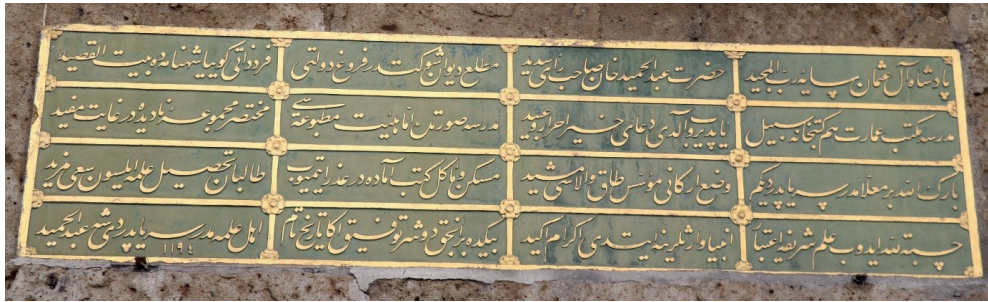 پادشاه آل عثمان سایۀ رب المجید حضرت عبد الحمید خان صاحب رأی سدید مطلع دیوان شوکتدر فروغ دولتی فرد ذاتی گوییا شهنامه ده بیت القصید
مدرسه مکتب عمارت هم کتبخانه سبیل یاپدیروب آلدی دعای خیر احرار و عبید مدرسه صورتده اما هیئت مطبوعه سی مختصر مجموعۀ نادیده در غایت مفید
بارک الله بر معلا مدرسه یاپدردی کیم وضع ارکانی مؤسس طاق والاسی مشید مسکن و مأکل کتب آماده در عذر ایتمیوب طالبان تحصیل علمه ایلسون سعی مزید
حسبة لله ایدوب علم شریفه اعتنا انبیا وارثلرینه ایتدی اکرام اکید بیکده بر الحق دوشر توفیق اکا تاریخ تام اهل علمه مدرسه یاپدردی شه عبد الحمید
١١٩٤